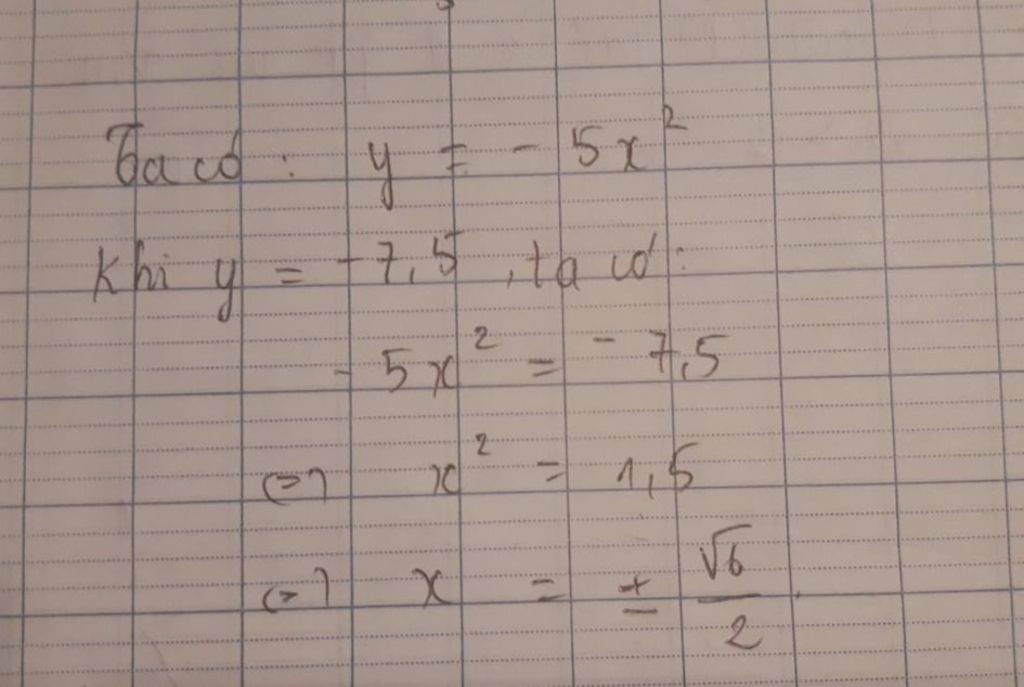 Ta có : y = - 5x²
Khi y = -7,5 , ta có :
- 5x² = - 7,5
<=> x² = 1,5
<=> x = ± √6/2 .